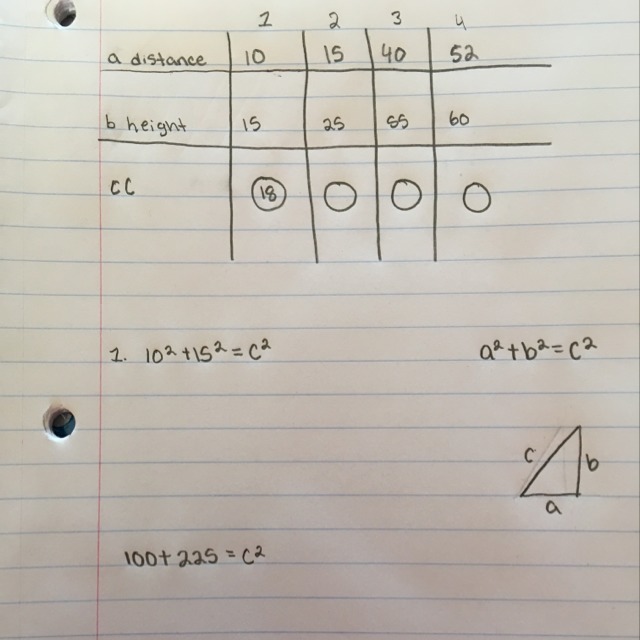 1 2 3 4
a distance 10 15 40 52
b height 15 25 55 60
CC 18
1. 10²+15²=c² a²+b²=c²
c b
a
100+225=c²